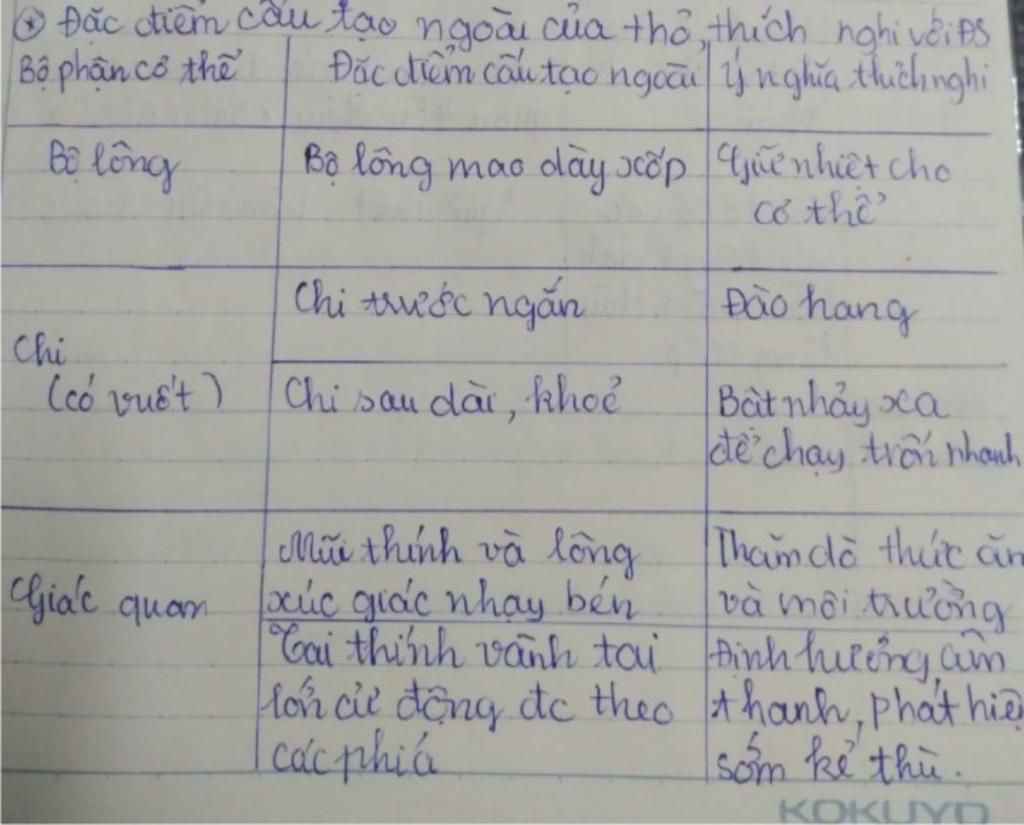 ⊛ Đặc điểm cấu tạo ngoài của thỏ, thích nghi với ĐS
Bộ phận cơ thể
Đặc điểm cấu tạo ngoài
Ý nghĩa thích nghi
Bộ lông
Bộ lông mao dày xốp
Giữ nhiệt cho
cơ thể
Chi
(có vuốt)
Chi trước ngắn
Đào hang
Chi sau dài, khoẻ
Bật nhảy xa
để chạy trốn nhanh
Giác quan
Mũi thính và lông
xúc giác nhạy bén
Thăm dò thức ăn
và môi trường
Tai thính vành tai
lớn cử động đc theo
các phía
Định hướng âm
thanh, phát hiệ
sớm kẻ thù.
KOKUYO